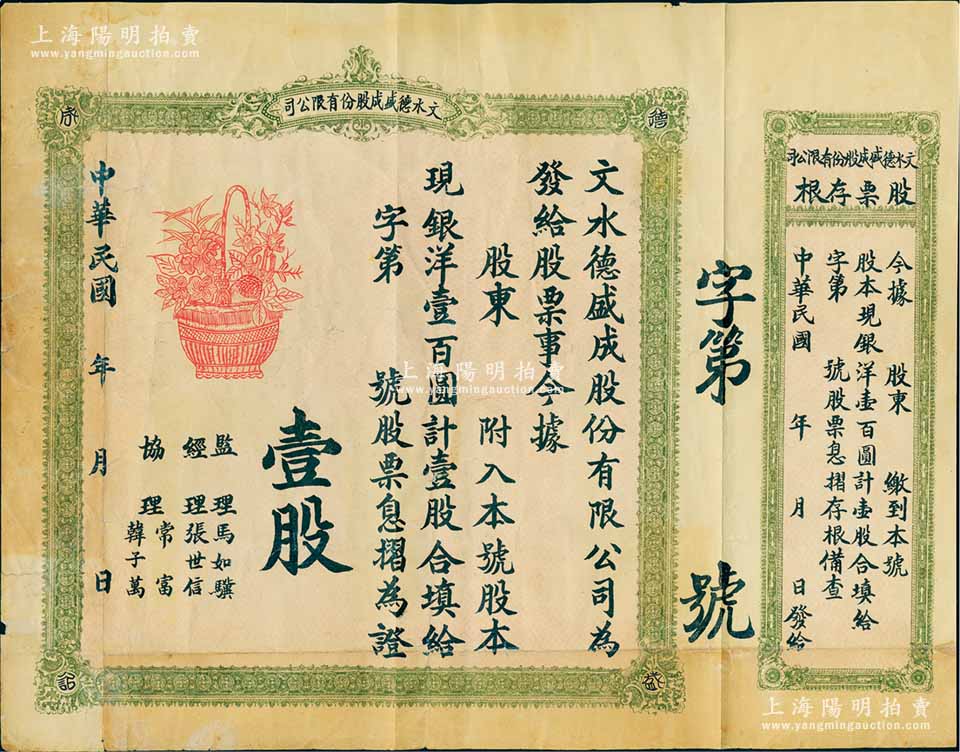 上海陽明拍賣
www.yangmingauction.com
文水德盛成股份有限公司
文水德盛成股份有限公司為
發給股票事今據
股東 附入本號股本
現銀洋壹百圓計壹股合填給
字第 號股票息摺為證
壹股
監理馬如驥
經理張世信
協理常富
韓子萬
中華民國 年 月 日
德
盛
成
記
字第 號
文水德盛成股份有限公司
股票存根
今據 股東 繳到本號
股本現銀洋壹百圓計壹股合填給
字第 號股票息摺存根備查
中華民國 年 月 日發給
上海陽明拍賣
www.yangmingauction.com
上海陽明拍賣
www.yangmingauction.com